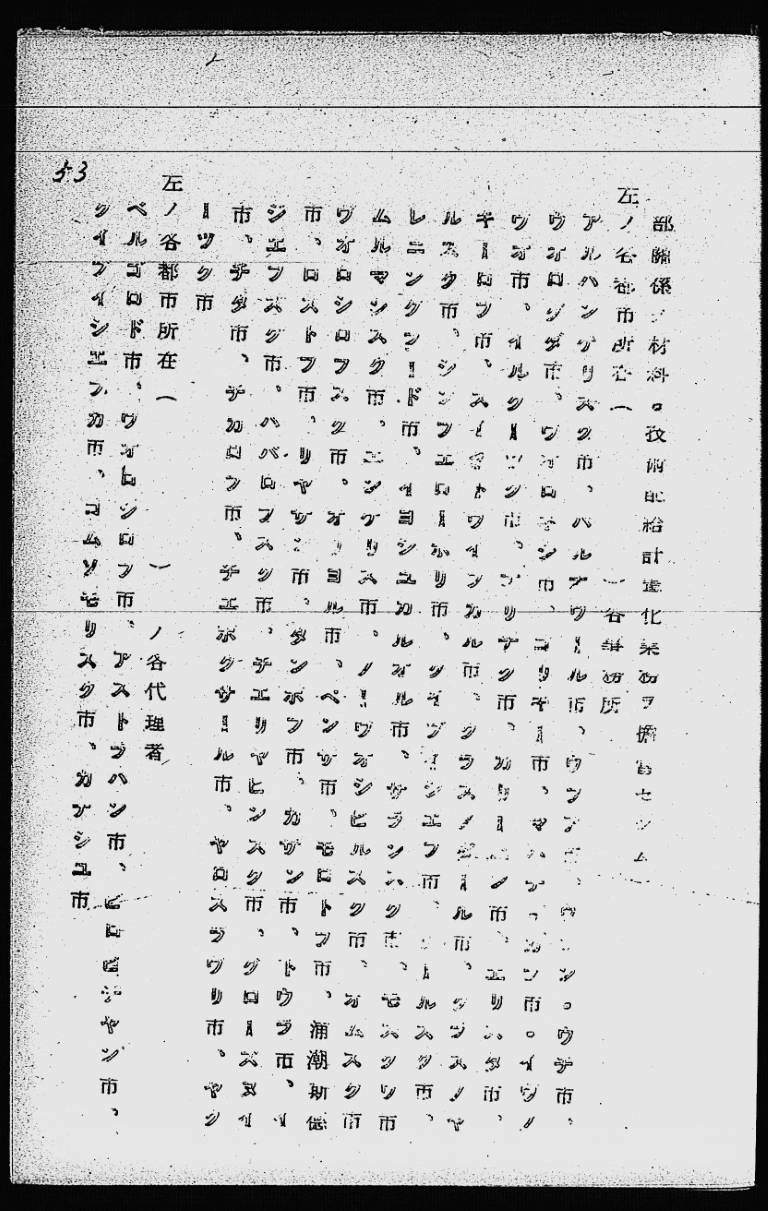 53
部關係ノ材料。技術配給計畫化業務ヲ擔當セシム
左ノ各都市所在(　)各事務所
アルハンゲリスク市、バルナウール市、ウファ市、ウラン。ウデ市、
ウオログダ市、ウオロネジ市、ゴリキー市、マハチ。カラ市。イワノ
ウオ市、イルクーツク市、アリナク市、カリーニン市、エリスタ市、
キーロフ市、スイクトウイフカル市、クラスノダール市、クラスノヤ
ルスク市、シンフエロポーリ市、クイブイシエフ市、クールスク市、
レニングラード市、イヨシユカルオル市、サランスク市、モスクワ市
ムルマンスク市、エンゲリス市、ノーウオシビルスク市、オムスク市
ウオロシロフスク市、オリヨル市、ペンザ市、モロトフ市、浦潮斯德
市、ロストフ市、リヤザン市、タンボフ市、カザン市、トウラ市、イ
ジエフスク市、ハバロフスク市、チエリヤビンスク市、グローズヌイ
市、チタ市、チカロフ市、チエボクサール市、ヤロスラワリ市、ヤク
ーツク市
左ノ各都市所在(　)ノ各代理者
ベルゴロド市、ウオロシロフ市、アストラハン市、ビロビヂヤン市、
クイブイシエフカ市、コムソモリスク市、カナシユ市